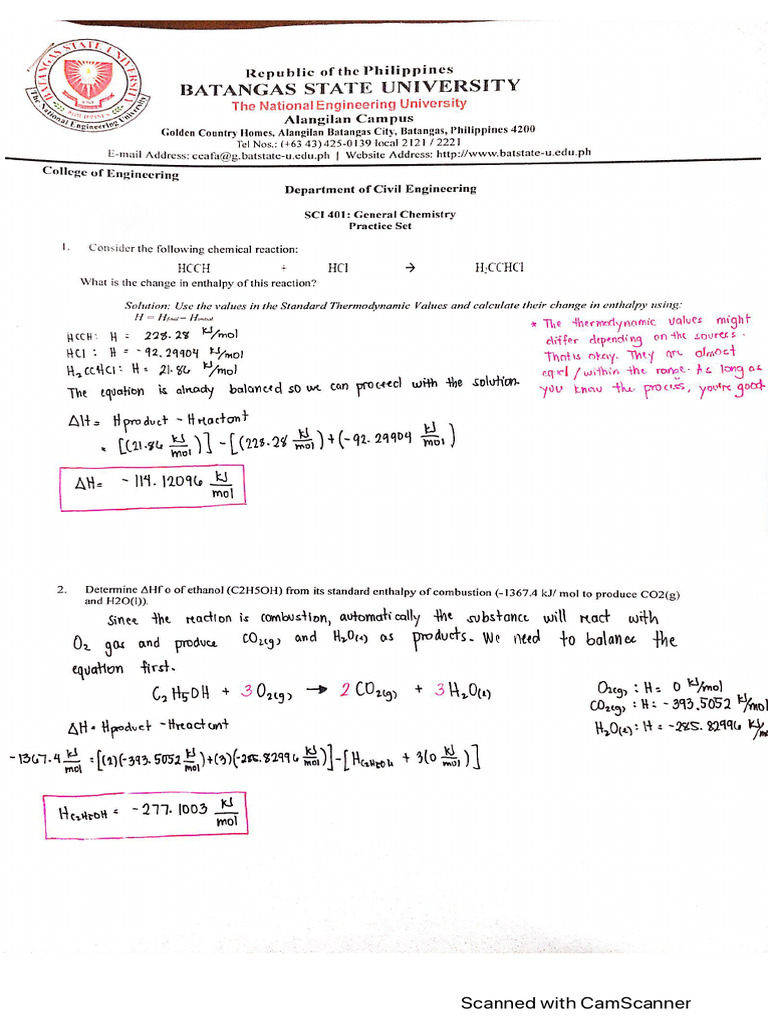 BATANGAS STATE UNIVERSITY
The National Engineering University
Republic of the Philippines
BATANGAS STATE UNIVERSITY
The National Engineering University
Alangilan Campus
Golden Country Homes, Alangilan Batangas City, Batangas, Philippines 4200
Tel Nos.: (+63 43) 425-0139 local 2121 / 2221
E-mail Address: ceafa@g.batstate-u.edu.ph | Website Address: http://www.batstate-u.edu.ph
College of Engineering
Department of Civil Engineering
SCI 401: General Chemistry
Practice Set
1. Consider the following chemical reaction:
HCCH + HCl → H₂CCHCl
What is the change in enthalpy of this reaction?
Solution: Use the values in the Standard Thermodynamic Values and calculate their change in enthalpy using:
H = Hfinal – Hinitial
HCCH: H = 228.28 kJ/mol
HCl: H = -92.29904 kJ/mol
H₂CCHCl: H = 21.86 kJ/mol
The equation is already balanced so we can proceed with the solution.
* The thermodynamic values might
differ depending on the sources.
That is okay. They are almost
equal / within the range. As long as
you know the process, you're good.
ΔH = Hproduct - Hreactant
= [(21.86 kJ/mol)] - [(228.28 kJ/mol) + (-92.29904 kJ/mol)
ΔH = -114.12096 kJ/mol
2. Determine ΔHf o of ethanol (C2H5OH) from its standard enthalpy of combustion (-1367.4 kJ/ mol to produce CO2(g)
and H2O(l)).
Since the reaction is combustion, automatically the substance will react with
O₂ gas and produce CO₂(g) and H₂O(l) as products. We need to balance the
equation first.
C₂H₅OH + 3O₂(g) → 2CO₂(g) + 3H₂O(l)
O₂(g): H = 0 kJ/mol
CO₂(g): H = -393.5052 kJ/mol
H₂O(l): H = -285.82996 kJ/m
ΔH = Hproduct - Hreactant
-1367.4 kJ/mol = [(2)(-393.5052 kJ/mol) + (3)(-285.82996 kJ/mol)] - [HC₂H₅OH + 3(0 kJ/mol)]
HC₂H₅OH = -277.1003 kJ/mol
Scanned with CamScanner